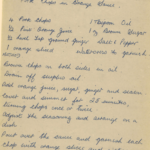 Pork Chops in Orange Sauce
4 Pork Chops 1 Tblspoon Oil
½ Pint Orange Juice 1 oz Brown Sugar
½ level Tsp Ground Ginger Salt & Pepper
1 orange sliced
Brown chops in both sides in oil
Drain off surplus oil
Add orange juice, sugar, ginger and season
Cover and simmer for 25 minutes,
turning chops once or twice
Adjust the seasoning and arrange on a
dish
Pour over the sauce and garnish each
chop with orange slices and